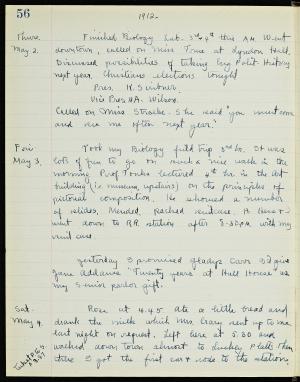 56
1912.
Thurs. Finished Biology Lab. 3rd & 4th this A.M. Went
May 2. downtown, called on Miss at Lyndon Hall.
Discussed possibilities of taking Eng Polit History
next year. Christians elections tonight
Pres. H. Scribner.
Vice Pres. A. Wilson.
Called on Miss Strache. She said "you must come
and see me often next year."
Fri. Took my Biology field trip 3rd hr. It was
May 3. lots of fun to go on such a nice walk in the
morning. Prof Tonks lectured 4th hr. in the Art
building (in museum, upstairs) on the principles of
pictorial composition. He showed a number
of slides. Mended, packed suitcase. H. and I
went down to R.R. station after 8:30 P.M. with my
suit case.
Yesterday I promised Gladys Carr I'd give
Jane Addams' "Twenty years at Hull House" as
my Senior parlor gift.
Sat. Rose at 4.45 ate a little bread and
May 4. drank the milk which Mrs. Crary sent up to me
last night on request. Left here at 5.30 and
walked down town almost to Luckey Platt's. Then
I got the first car & rode to the station,